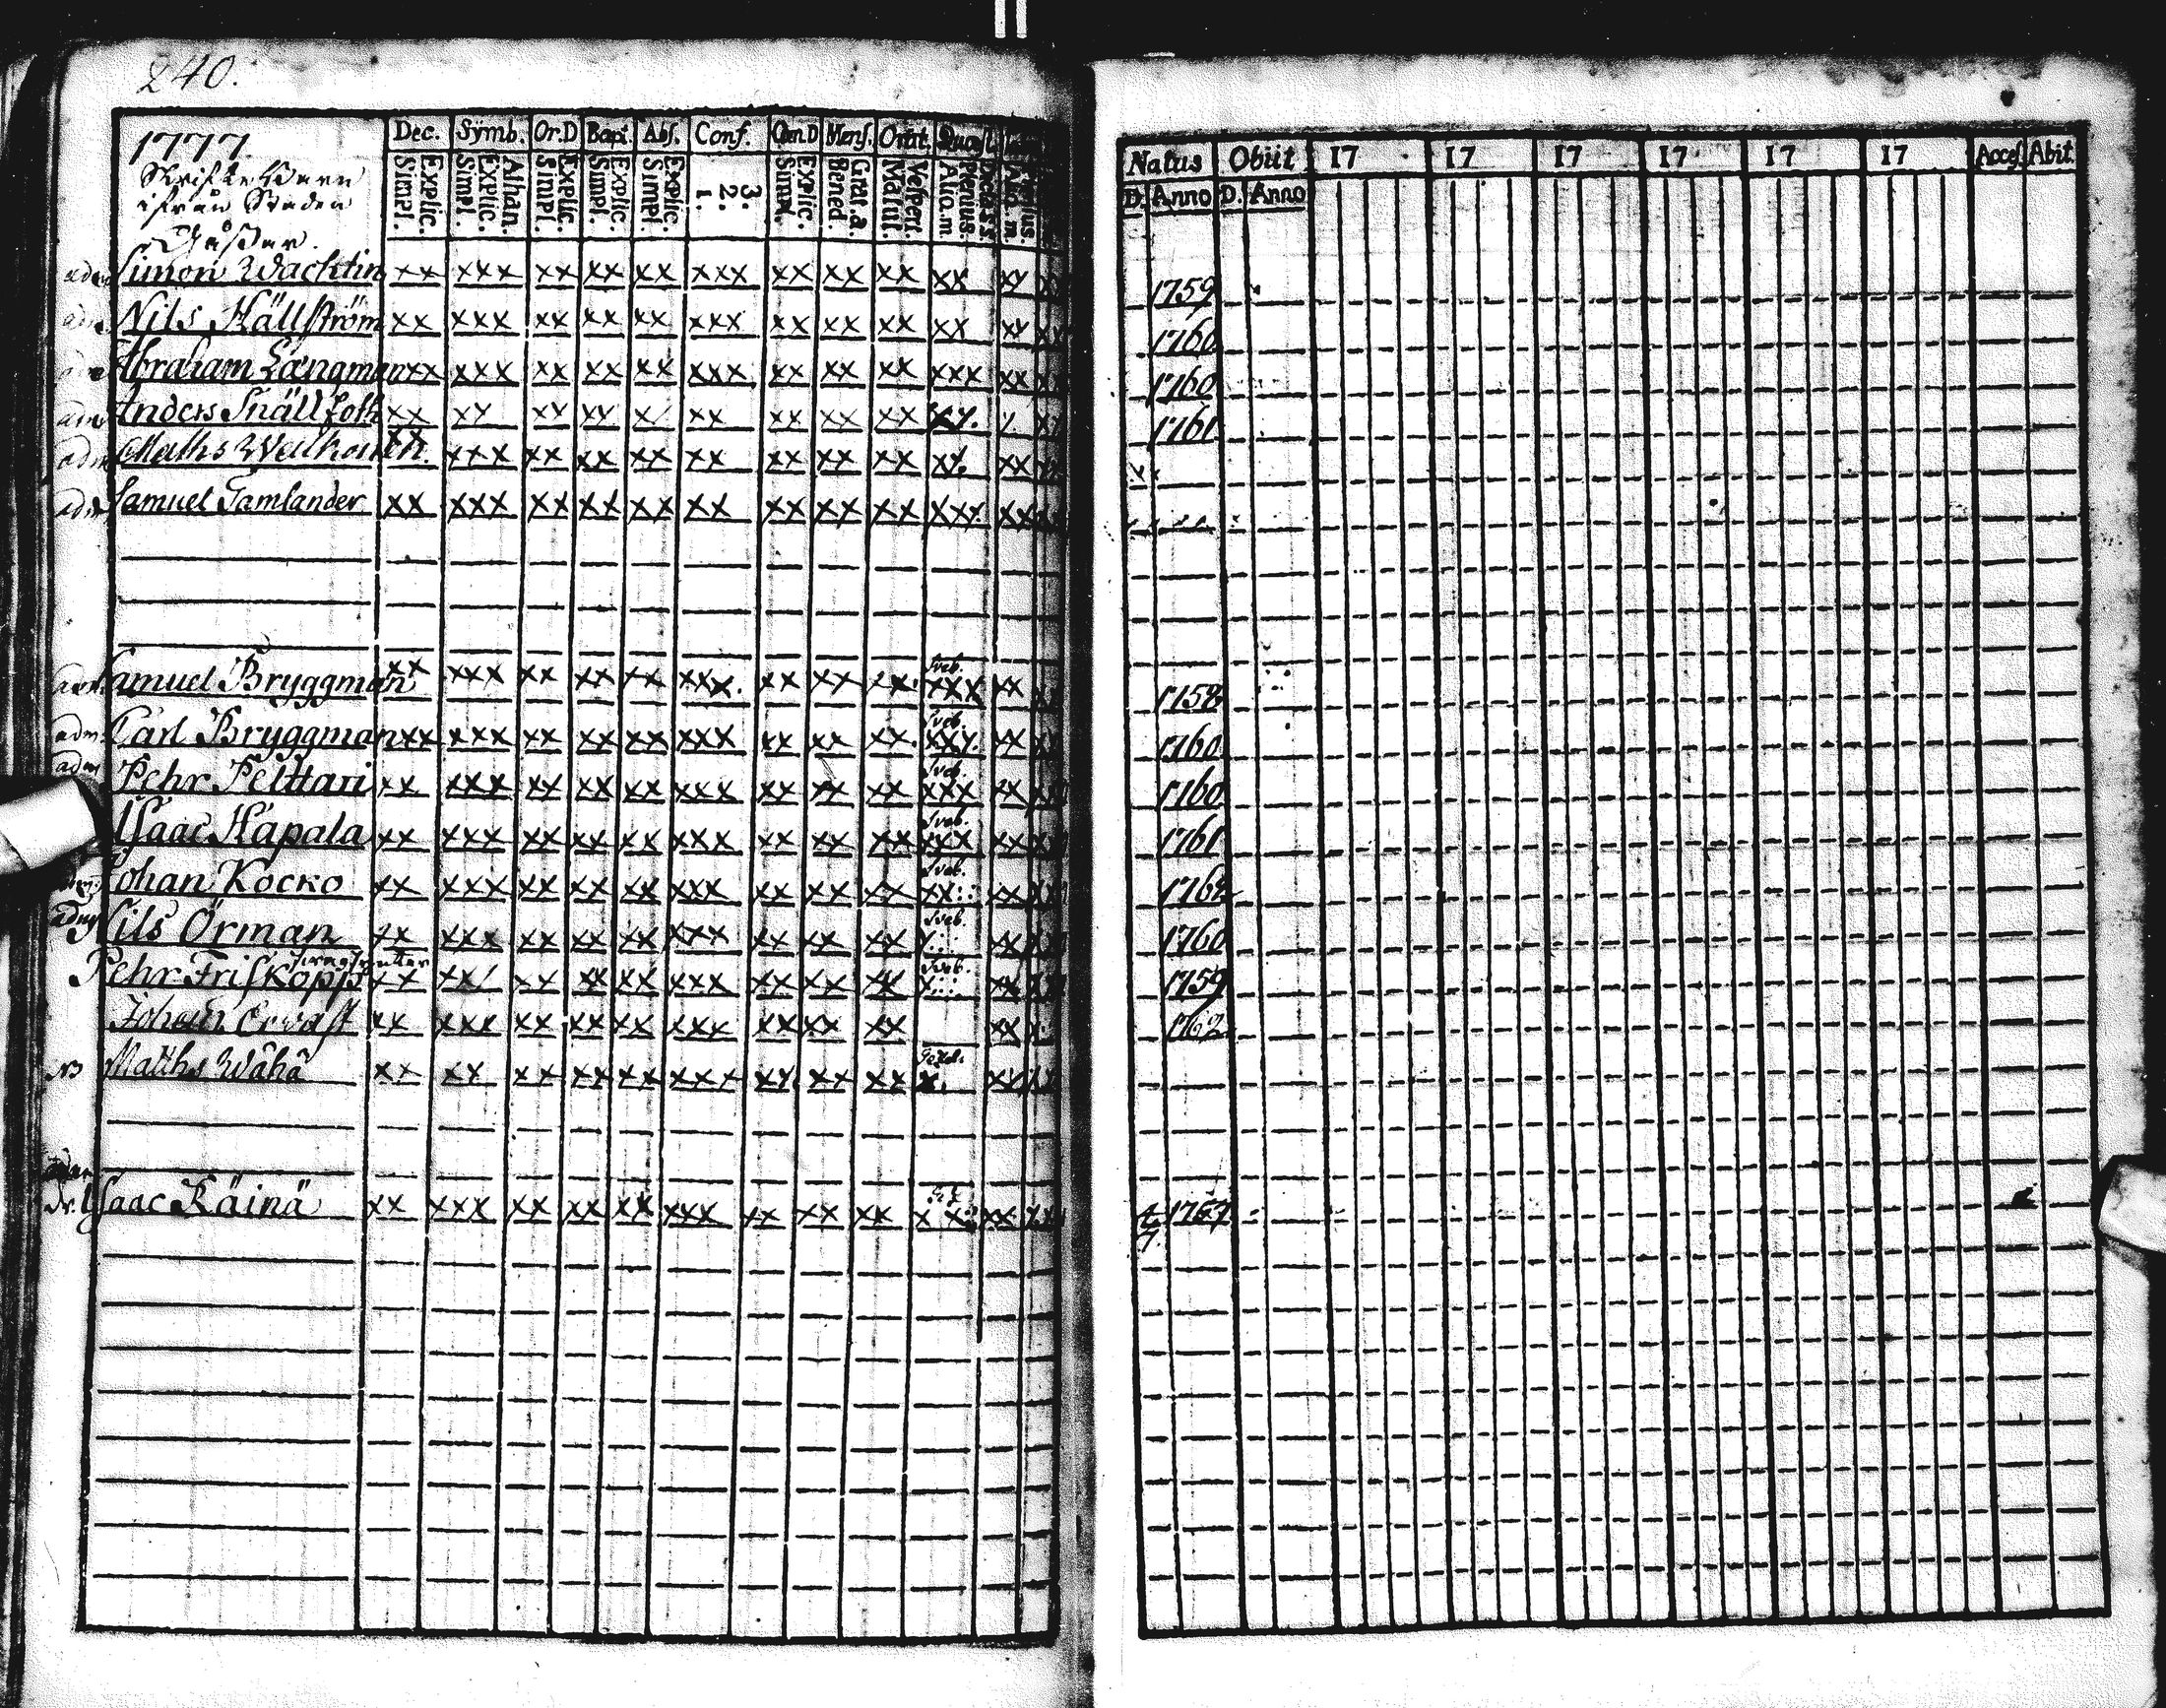 240.
1777.
Skrifte Barn
ifrån Staden
Gåßar.
Dec. Symb. Or.D Bapt. Abs. Conf. Cœn.D Mens. Orat. Quæst.
Explic. Simpl. Athan. Explic. Simpl. Explic. Simpl. Explic. Simpl. Explic. Simpl. 3. 2. 1. Explic. Simpl. Grat. a. Bened. Vesper. Matut. Plenius. Aliq.m. Aliq.m.
Natus Obiit 17 17 17 17 17 17 Acces. Abit.
D. Anno D. Anno
adm Simon Wacktin xx xxx xx xx xx xxx xx xx xx xx xx xx 1759
adm Nils Hällström xx xxx xx xx xx xxx xx xx xx xx xx xx 1760
Abraham Længman xx xxx xx xx xx xxx xx xx xx xxx xx 1760
adm Anders Snällfoth xx xx xx xx x xx xx xx xx xx. x 1761
adm Maths xx xxx xx xx xx xx xx xx xx xx xx
adm Samuel Tamlander xx xxx xx xx xx xx xx xx xx xxx xx
adm Samuel Bryggman xx xxx xx xx xx xxx. xx xx xx Sveb. xxx xx xx 1758
adm. Carl Bryggman xx xxx xx xx xx xxx xx xx xx. Sveb. xxx. xx xx 1760
adm Pehr Pelttari xx xxx xx xx xx xxx xx xx xx Sveb. xxx xx xxx 1760
Isaac Hapala xx xxx xx xx xx xxx xx xx xx Sveb. xxx xx xxx 1761
adm. Johan Kocko xx xxx xx xx xx xxx xx xx xx Sveb. xx:: xx xxx 1762
adm Nils Örman xx xxx xx xx xx xxx xx xx xx Sveb. x:: xx xxx 1760
Pehr Friskopp xx xxx xx xx xx xxx xx xx xx Sveb. x::. xx xxx 1759
Johan Ervast xx xxx xx xx xx xxx xx xx xx xx x. 1762
NB Matths Wähä xx xx xx xx xx xxx xx xx xx x. xx xx
Isaac Käinä xx xxx xx xx xx xxx xx xx xx x x xx xx 1767